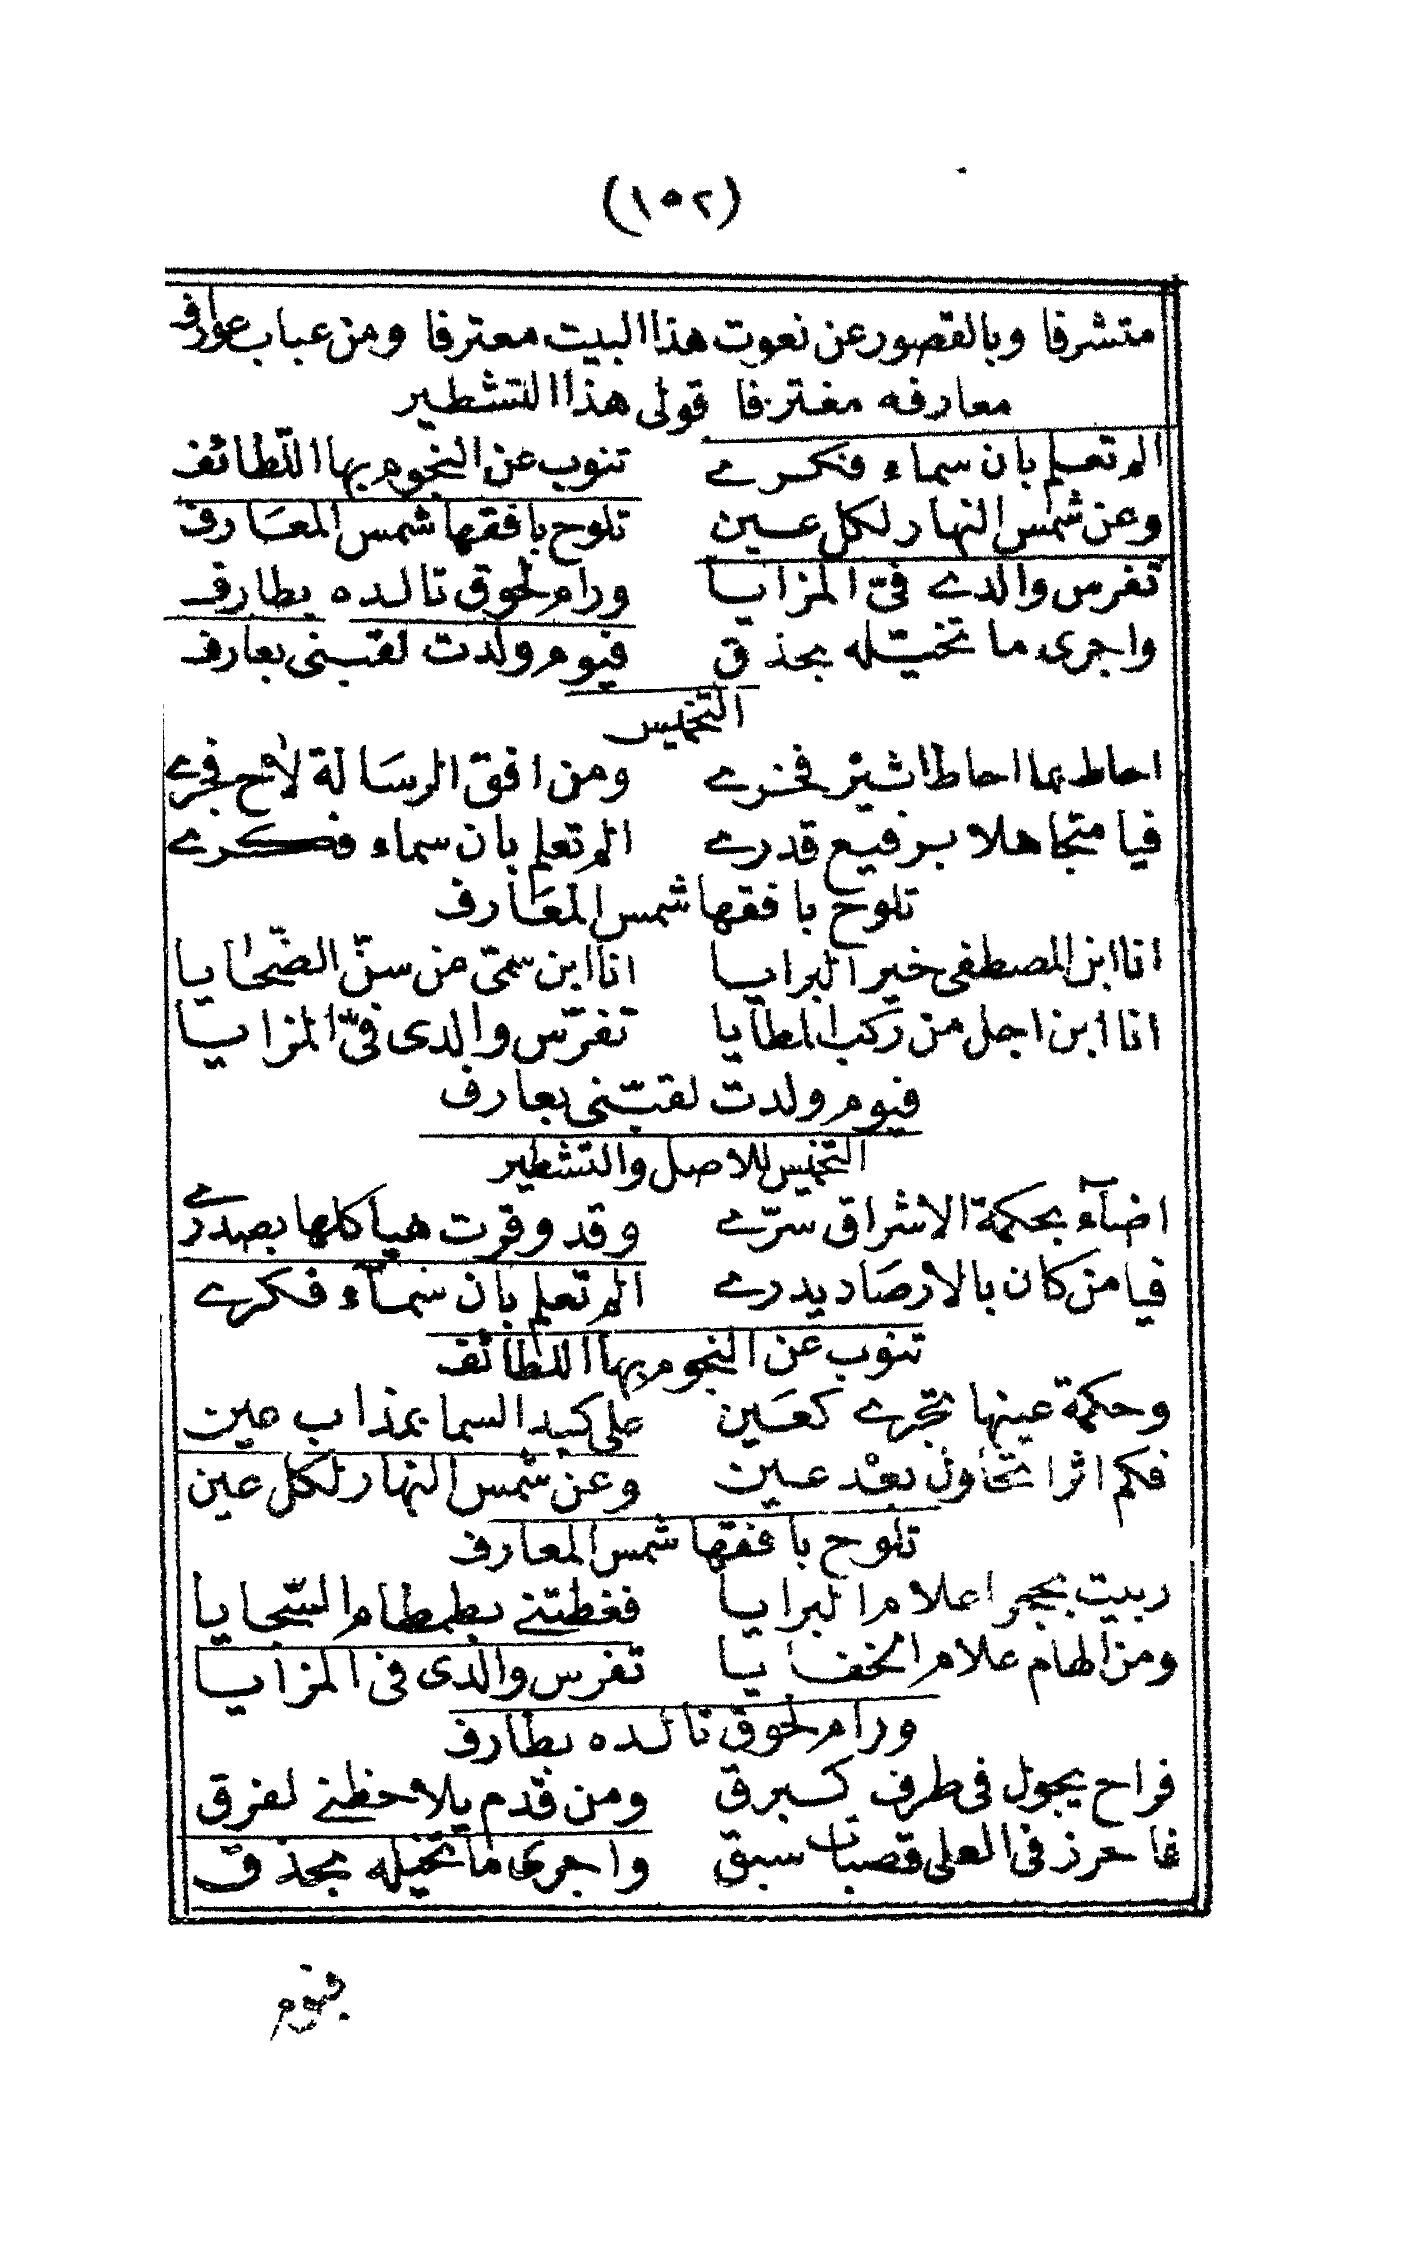 (١٥٢)
متشرفا وبالقصور عن نعوت هذا البيت معترفا ومن عباب عوارف
معارفه مغترفا قولى هذا التشطير
الم تعلم بان سماء فكرے تنوب عن النجوم بها اللطائف
وعن شمس النهار لكل عين تلوح بافقها شمس المعارف
تفرس والدے فىّ المزايا ورام لحوق تالده بطارف
واجرى ما تخيّله بحذق فيوم ولدت لقبنى بعارف
التخميس
احاط بما احاط اثير فخرے ومن افق الرسالة لاح فجرے
فيا متجاهلا برفيع قدرے الم تعلم بان سماء فكرے
تلوح بافقها شمس المعارف
انا ابن المصطفى خير البرايا انا ابن سمىّ من سنّ الضحايا
انا ابن اجل من ركب المطايا تفرّس والدى فىّ المزايا
فيوم ولدت لقبّنى بعارف
التخميس للاصل والتشطير
اضاۤء بحكمة الاشراق سرّے وقد وقرت هياكلها بصدرے
فيا من كان بالارصاد يدرے الم تعلم بان سماۤء فكرے
تنوب عن النجوم بها اللطائف
وحكمة عينها تجرے كعين على كبد السما بمذاب عين
فكم اثرا تحاول بعد عين وعن شمس النهار لكل عين
تلوح بافقها شمس المعارف
ربيت بحجر اعلام البرايا فغطتنے بطمطام السّجايا
ومن الهام علام الخفايا تفرس والدى فى المزايا
ورام لحوق تالده بطارف
فراح يجول فى طرف كبرق ومن قدم يلاحظنے لفرق
فاحرز فى العلى قصبات سبق واجرى ما تخيله بحذق
فيوم